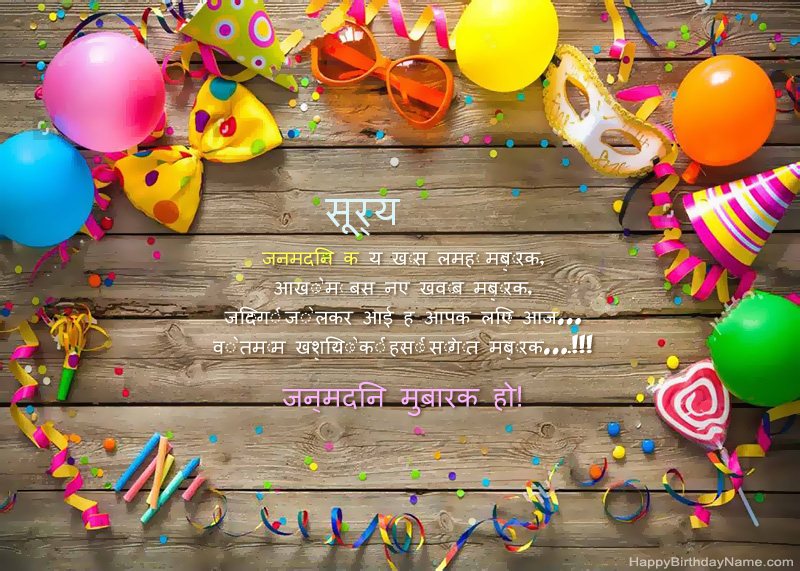 सूर्य
जनमदिन क य खास लमह मबारक,
आखों म बस नए खवाब मबारक,
जदिगी जो लेकर आई ह आपक लिए आज...
वो तमाम खशियों की हसीं सौगात मबारक....!!!
जन्मदिन मुबारक हो!
HappyBirthdayName.com